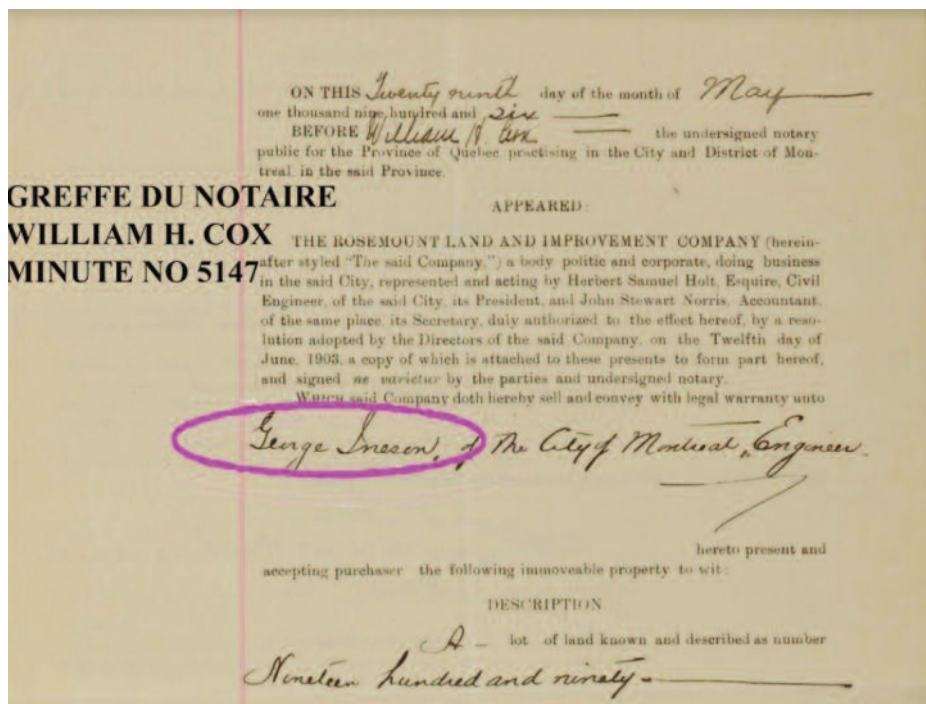 ON THIS Twenty ninth day of the month of May
one thousand nine hundred and six
BEFORE William H. Cox the undersigned notary
public for the Province of Quebec practising in the City and District of Mon-
treal in the said Province.
GREFFE DU NOTAIRE
WILLIAM H. COX
MINUTE NO 5147
APPEARED:
THE ROSEMOUNT LAND AND IMPROVEMENT COMPANY (herein-
after styled "The said Company,") a body politic and corporate, doing business
in the said City, represented and acting by Herbert Samuel Holt, Esquire, Civil
Engineer, of the said City, its President, and John Stewart Norris, Accountant,
of the same place, its Secretary, duly authorized to the effect hereof, by a reso-
lution adopted by the Directors of the said Company, on the Twelfth day of
June, 1903, a copy of which is attached to these presents to form part hereof,
and signed ne varietur by the parties and undersigned notary.
WHICH said Company doth hereby sell and convey with legal warranty unto
George Ineson, of The City of Montreal, Engineer.
hereto present and
accepting purchaser the following immoveable property to wit:
DESCRIPTION
A lot of land known and described as number
Nineteen hundred and ninety